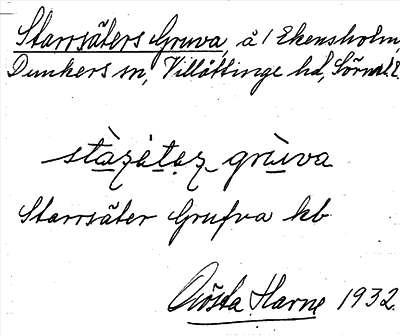 Starrsäters Gruva, å 1 Ekensholm,
Dunkers sn, Villåttinge hd, Sörml.
stàzätez grùva
Starrsäter Grufva kb
Gösta Harne 1932.